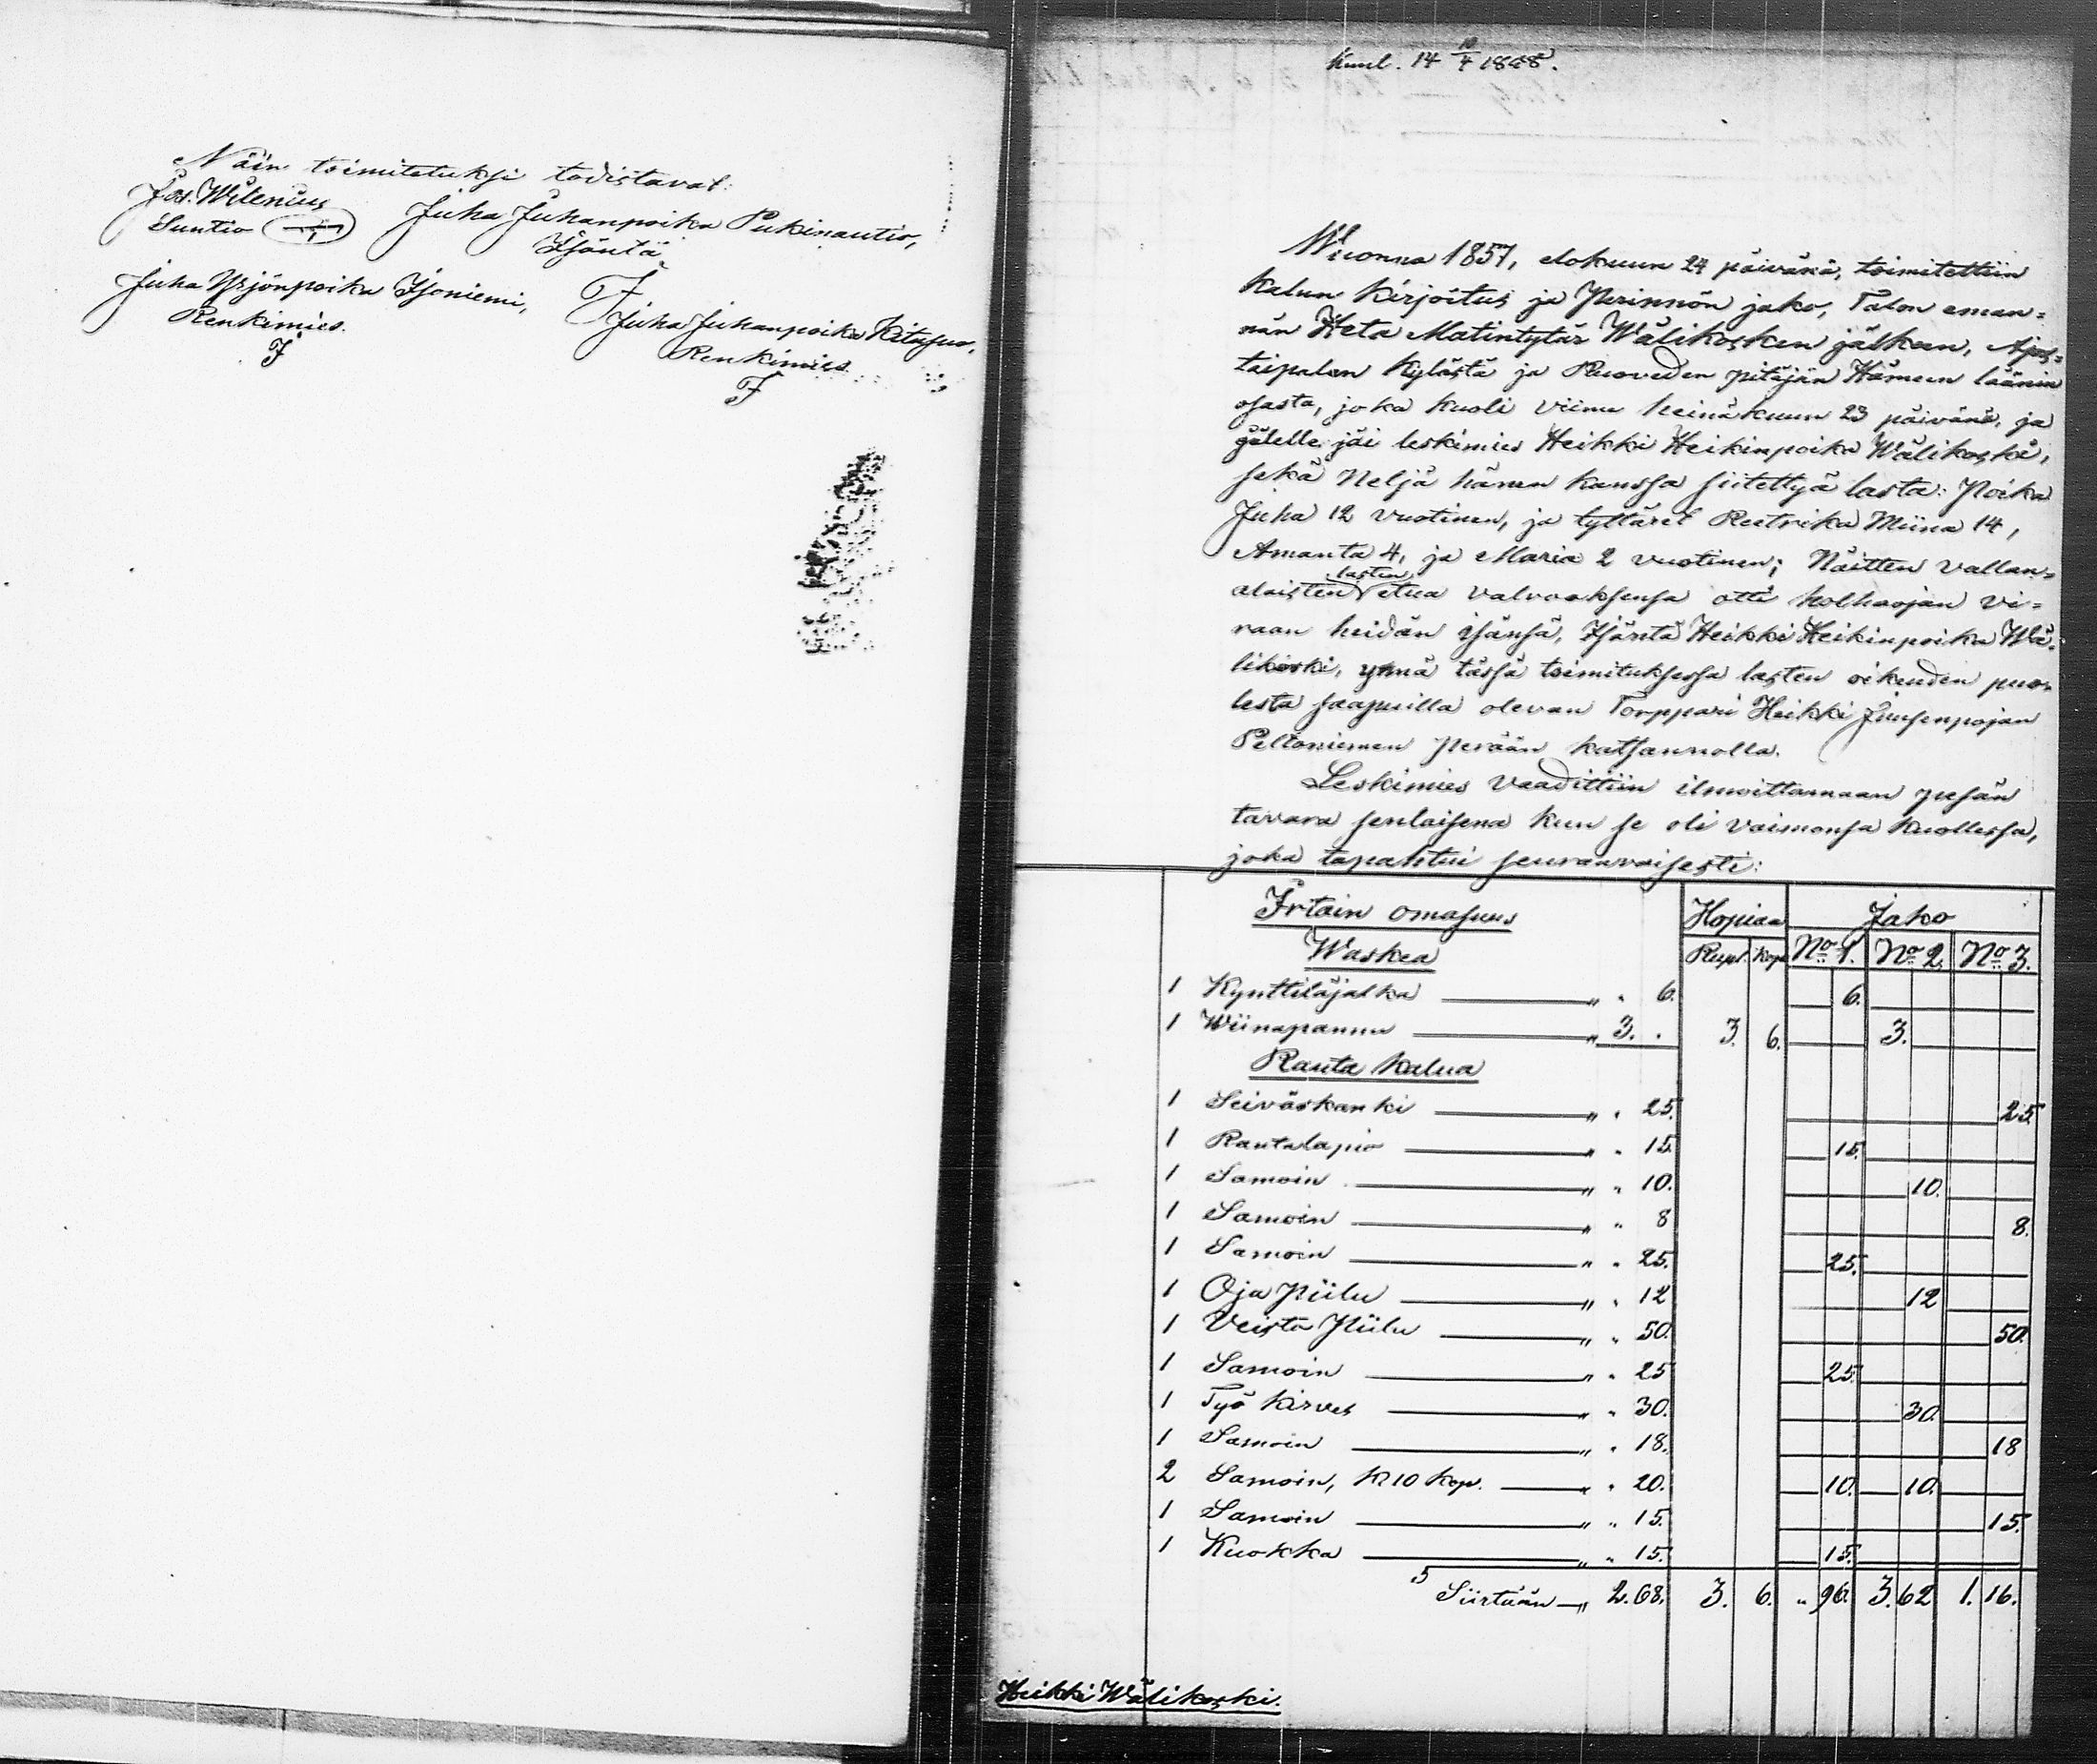 Näin toimitetuksi todistavat:
Jos. Wilenius
Suntio
Juha Juhanpoika Pukinautio,
Isäntä
Juha Yrjönpoika Isoniemi,
Renkimies.
Juha Juhanpoika
Renkimies
Kuul. 14 10/4 1868.
Wuonna 1857, elokuun 24 päivänä, toimitettiin
Kalun Kirjoitus ja Perinnön jako, Talon eman=
nän Heta Matintytär Wälikosken jälkeen, Ajos=
taipaleen Kylästä ja Ruoveden pitäjän Hämeen läänin
osasta, joka kuoli viime heinäkuun 23 päivänä, ja
jälelle jäi leskimies Heikki Heikinpoika Wälikoski,
sekä Neljä hänen kanssa siitettyä lasta: Poika
Juha 12 vuotinen, ja tyttäret Reetrika Miina 14,
Amanta 4, ja Maria 2 vuotinen; Näitten vallan=
alaisten lasten etua valvoaksensa otti holhoojan vi=
raan heidän isänsä, Isäntä Heikki Heikinpoika Wä=
likoski, ynnä tässä toimituksessa lasten oikeuden puo=
lesta saapuilla olevan Torppari Heikki Juusenpojan
Peltoniemen perään katsannolla.
Leskimies vaadittiin ilmoittamaan pesän
tavara senlaisena kun se oli vaimonsa kuollessa,
joka tapahtui seuraavaisesti:
Irtain omasuus Hopiaa Jako
Waskea Rupl. Kop. No 1. No 2. No 3.
1 Kynttiläjalka " " 6. 6.
1 Wiinapannu " 3. " 3. 6. 3.
Rauta Kalua
1 Seiväskanki " " 25. 25
1 Rautalapio " " 15. 15.
1 Samoin " " 10. 10.
1 Samoin " " 8 8.
1 Samoin " " 25. 25.
1 Oja Piilu " " 12 12
1 Veisto Piilu " " 50. 50.
1 Samoin " " 25 25.
1 Työ Kirves " " 30. 30.
1 Samoin " " 18. 18
2 Samoin, K 10 Kop. " " 20. 10. 10.
1 Samoin " " 15. 15.
1 Kuokka " " 15. 15.
Siirtään " 2.68. 3. 6. " 96. 3.62 1.16.
Heikki Wälikoski.